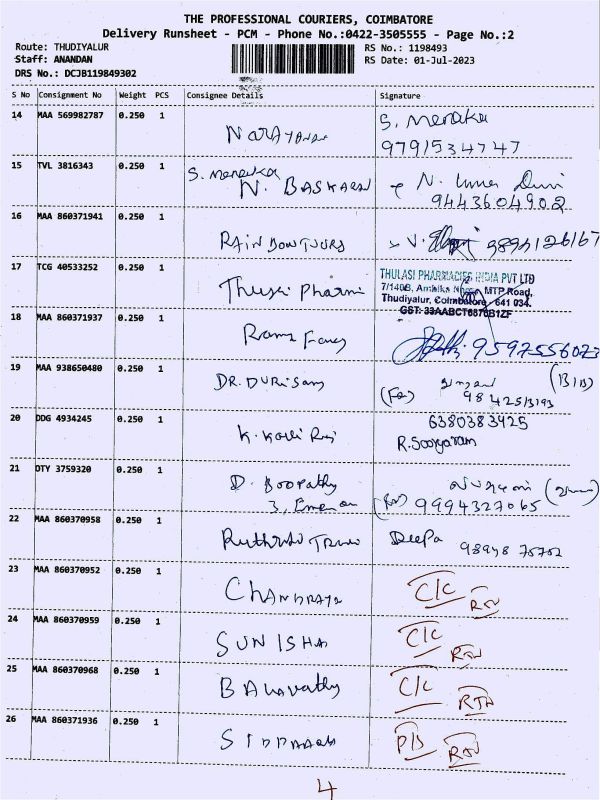 THE PROFESSIONAL COURIERS, COIMBATORE
Delivery Runsheet - PCM - Phone No.:0422-3505555 - Page No.:2
Route: THUDIYALUR RS No.: 1198493
Staff: ANANDAN RS Date: 01-Jul-2023
DRS No.: DCJB119849302
S No Consignment No Weight PCS Consignee Details Signature
14 MAA 569982787 0.250 1 S. Menaka
9791534747
15 TVL 3816343 0.250 1 S. Menaka
N. BASKARAN N.
9443604902
16 MAA 860371941 0.250 1 V. 9894126167
17 TCG 40533252 0.250 1 Thulasi Pharmi
THULASI PHARMACIES INDIA PVT LTD
7/140B, Ambika Nagar, MTP Road,
Thudiyalur, Coimbatore 641 034.
GST: 33AABCT6876B1ZF
18 MAA 860371937 0.250 1 Rama 9597556023
19 MAA 938650480 0.250 1 DR. DURISAMY (For)
20 DDG 4934245 0.250 1 6380383925
K. R. Sooryaram
21 OTY 3759320 0.250 1 D. Boopathy
3, (For) 9994327065
22 MAA 860370958 0.250 1 Deepa
23 MAA 860370952 0.250 1 C/C RTN
24 MAA 860370959 0.250 1 SUNISHA C/C RTN
25 MAA 860370968 0.250 1 C/C RTN
26 MAA 860371936 0.250 1 RTN
4